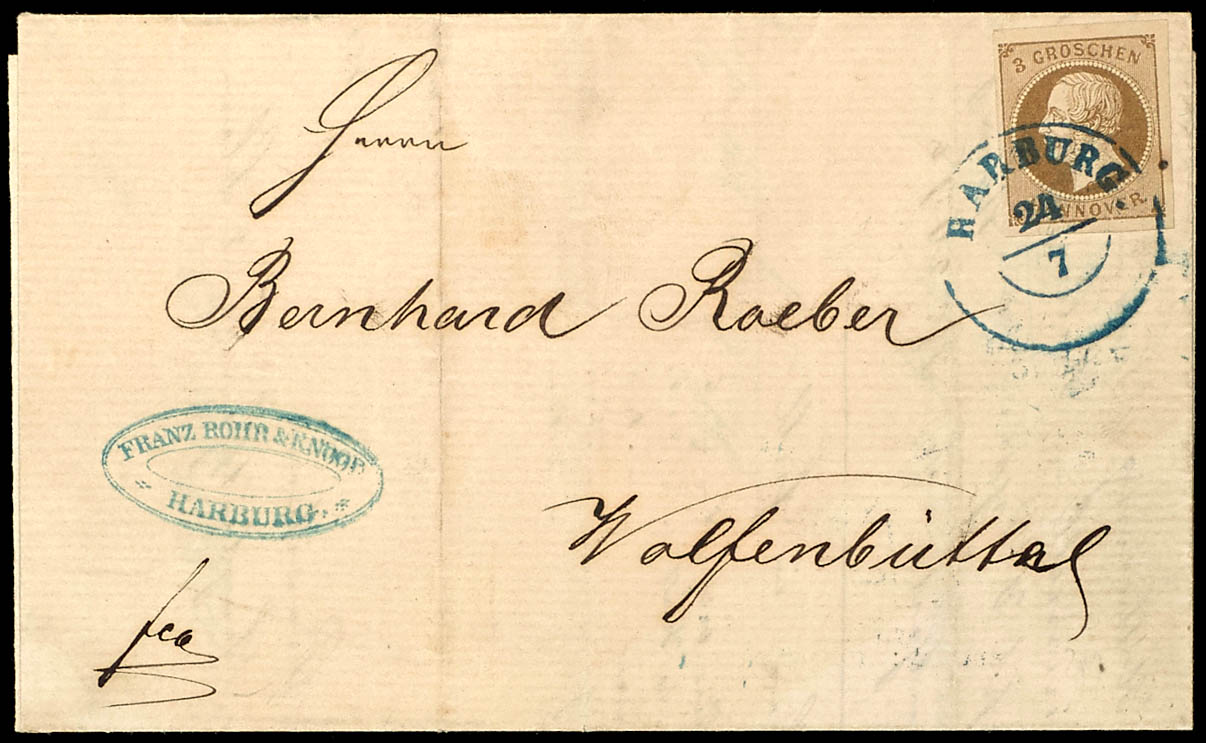 3 GROSCHEN
HANNOVER
HARBURG.
24
7
Herrn
Bernhard Roeber
FRANZ BOHR & KNOOP
HARBURG.
Wolfenbüttel
fco